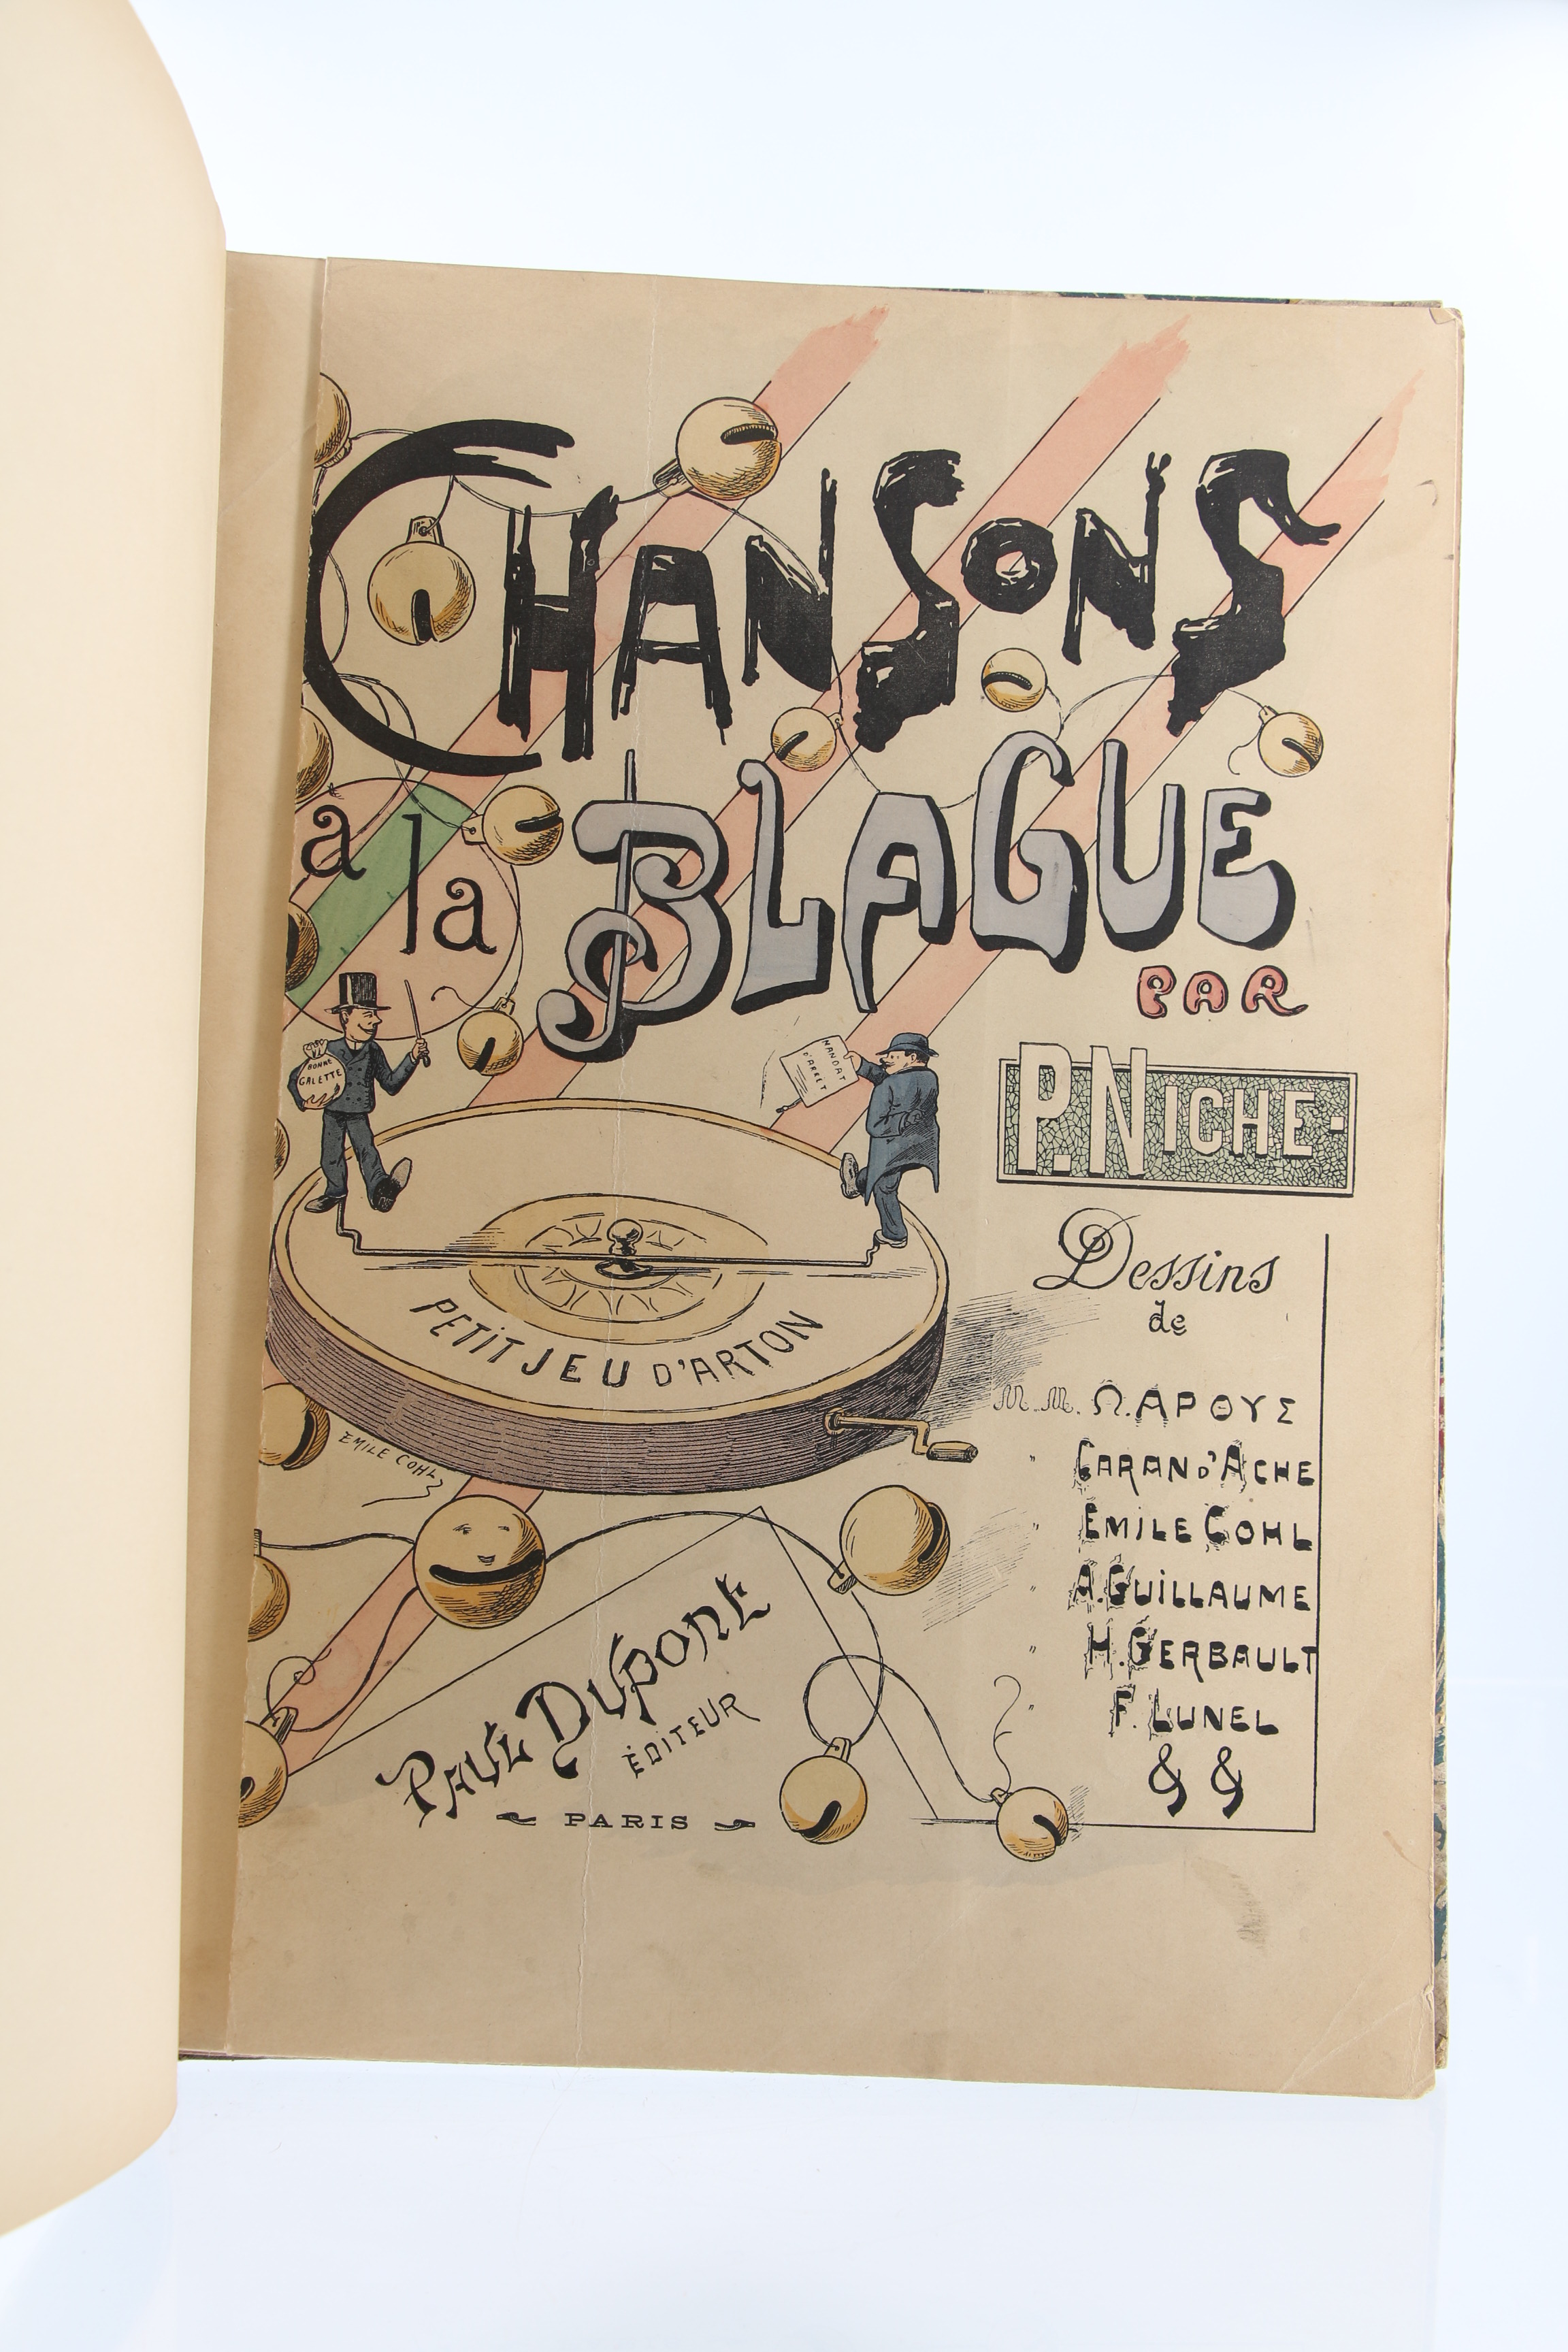 CHANSONS
à la
BLAGUE
PAR
P. NICHE-
BONNE
GALETTE
MANDAT
D'ARRÊT
PETIT JEU D'ARTON
EMILE COHL
Dessins
de
M.M. Ω.ΑΡΟΥΣ
" CARAN D'ACHE
" EMILE COHL
" A. GUILLAUME
" H. GERBAULT
" F. LUNEL
& &
PAUL DUPONT
ÉDITEUR
PARIS